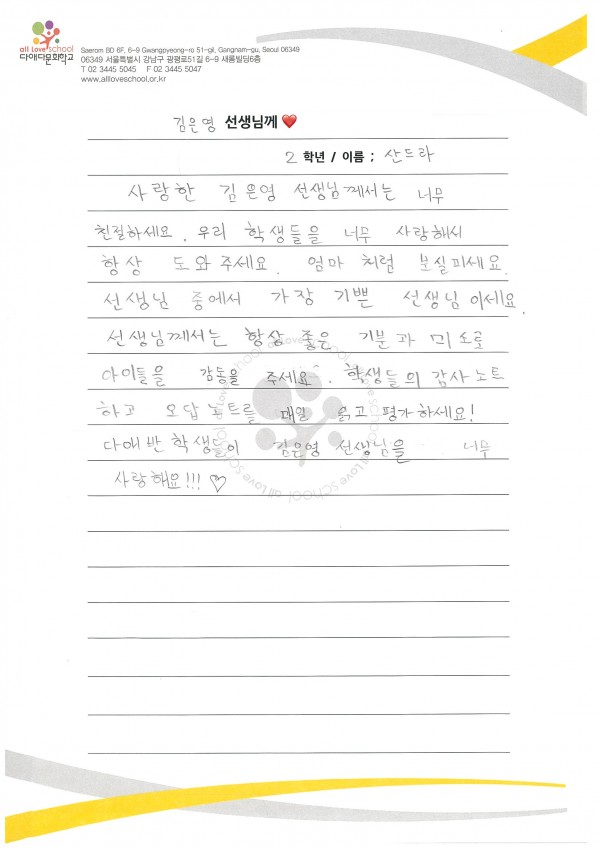 all Love school
다애다문화학교
Saerom BD 6F, 6-9 Gwangpyeong-ro 51-gil, Gangnam-gu, Seoul 06349
06349 서울특별시 강남구 광평로51길 6-9 새롬빌딩6층
T 02 3445 5045 F 02 3445 5047
www.allloveschool.or.kr
김은영 선생님께 ❤
2 학년 / 이름 ; 산드라
사랑한 김은영 선생님께서는 너무
친절하세요. 우리 학생들을 너무 사랑해서
항상 도와주세요. 엄마 처럼 분실피세요.
선생님 중에서 가장 기쁜 선생님이세요.
선생님께서는 항상 좋은 기분과 미소로
아이들을 감동을 주세요^. 학생들의 감사노트
하고 오답노트를 매일 읽고 평가하세요!
다애반 학생들이 김은영 선생님을 너무
사랑해요!!! ♡
all Love school all Love school all Love school all Love school